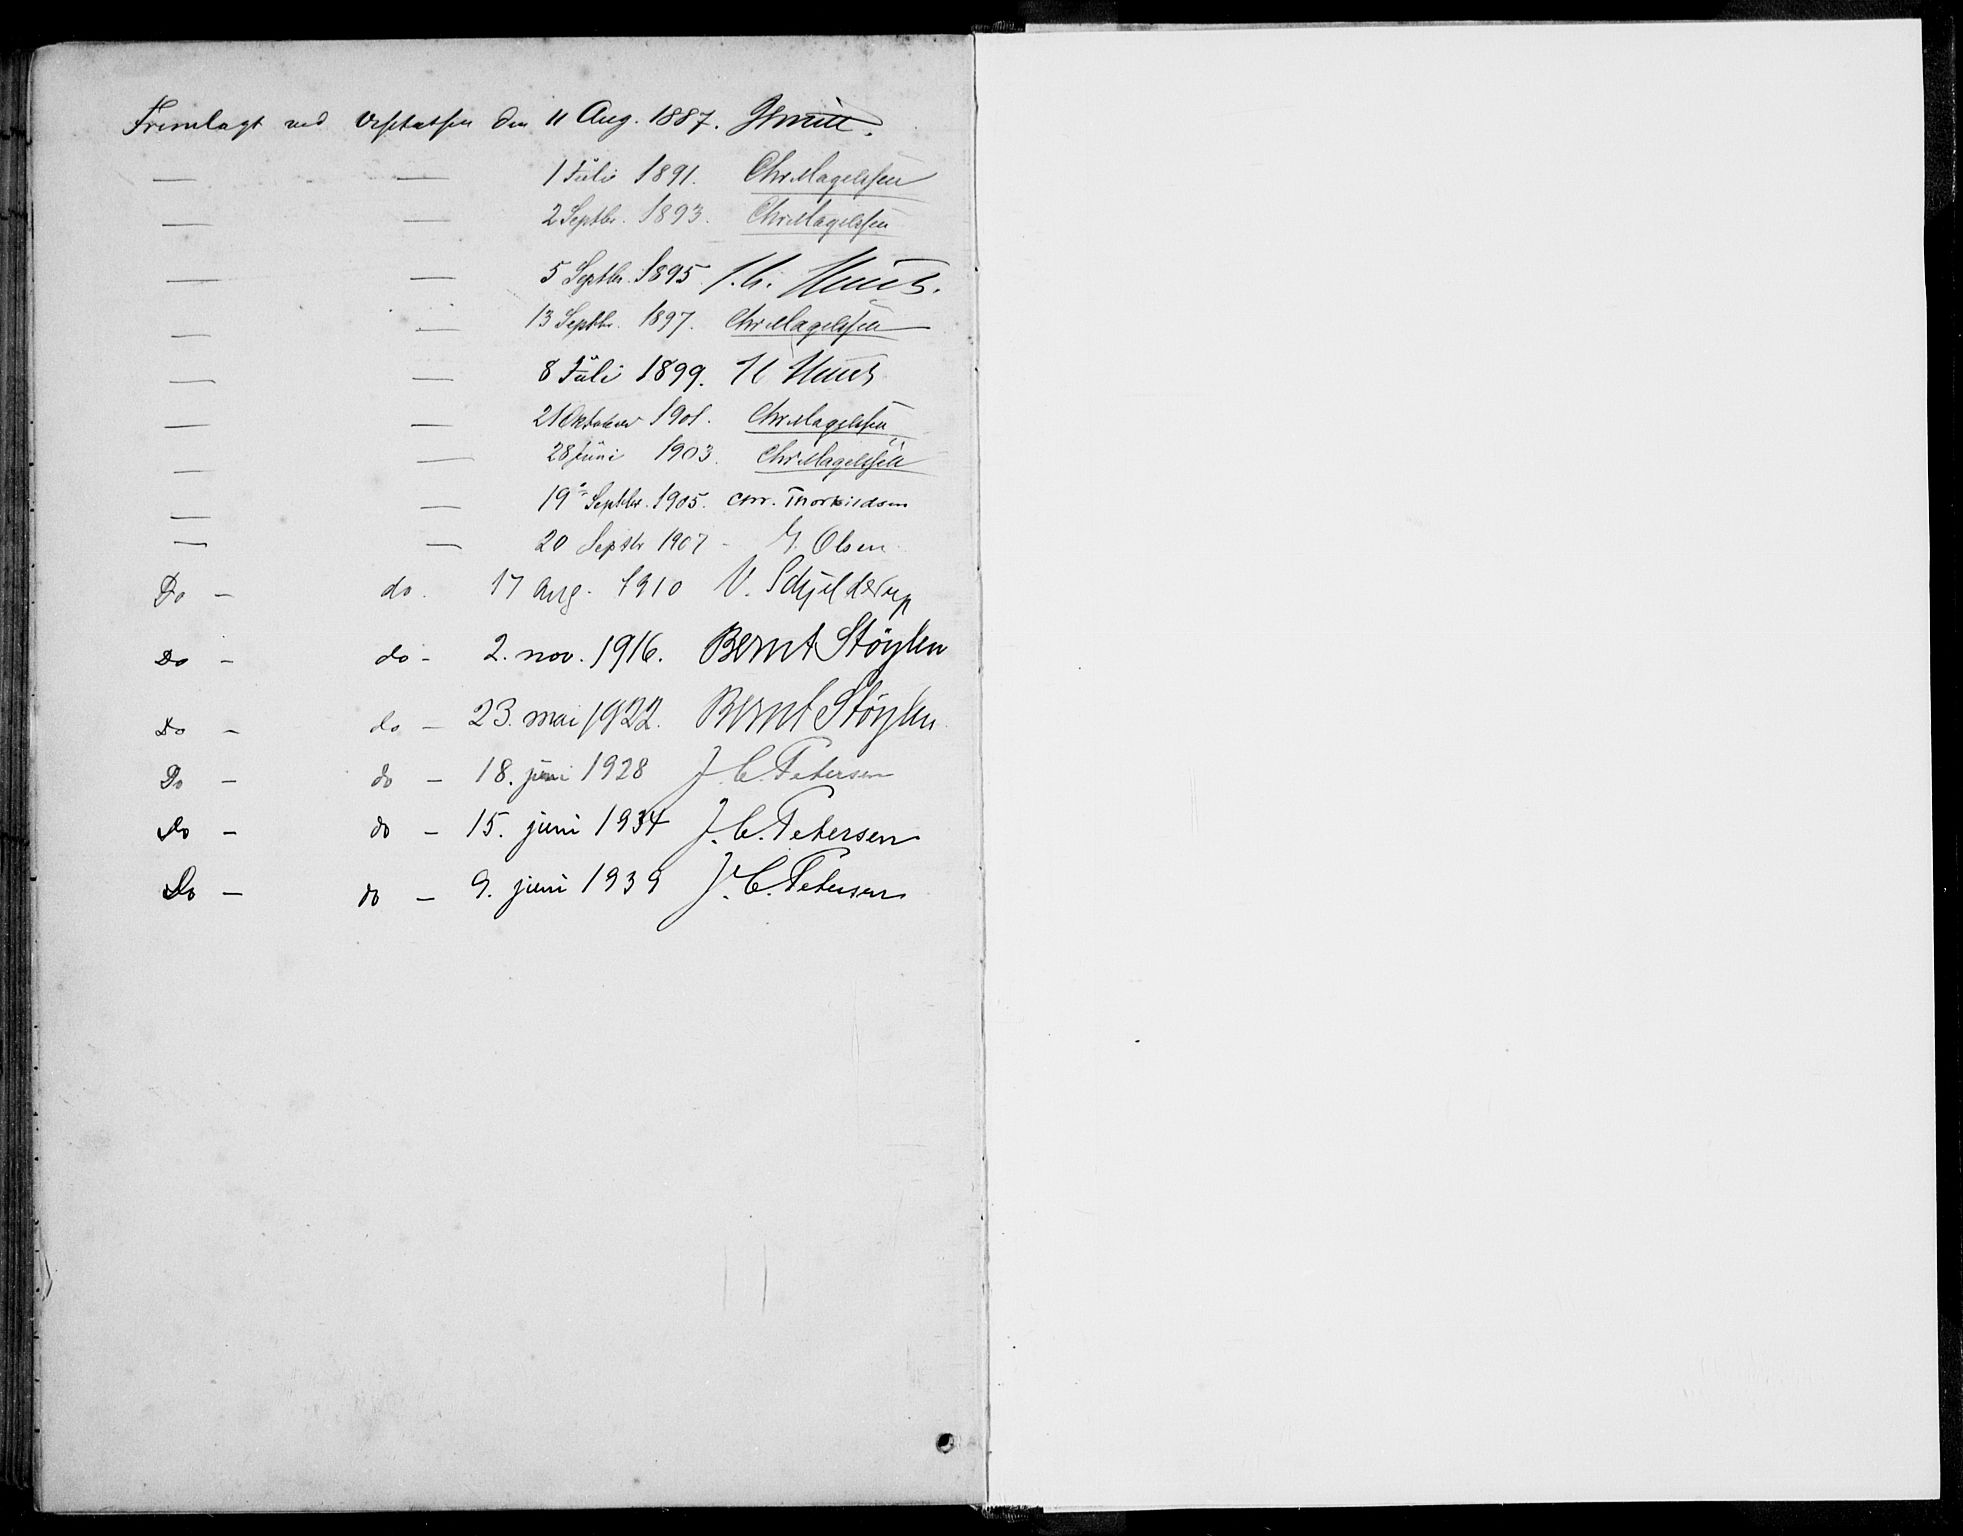 Fremlagt ved Visitatsen den 11 Aug. 1887.
— — 1 Juli 1891. Chr Magelssen
— — 2 Septbr. 1893. Chr Magelssen
— — 5 Septbr. 1895.
— — 13 Septbr. 1897. Chr Magelssen
— — 8 Juli 1899.
— — 21 Oktober 1901. Chr Magelssen
— — 28 Juni 1903. Chr Magelssen
— — 19 Septbr. 1905. Chr. Thorkildsen
— — 20 Septbr 1907 - G. Olsen
Do - do. 17 Aug. 1910 V. Schjelderup
Do - do - 2. nov. 1916. Bernt Støylen
Do - do - 23. mai 1922. Bernt Støylen
Do - do - 18. juni 1928 J. C. Petersen
Do - do - 15. juni 1934 J. C. Petersen
Do - do - 9. juni 1939 J. C. Petersen